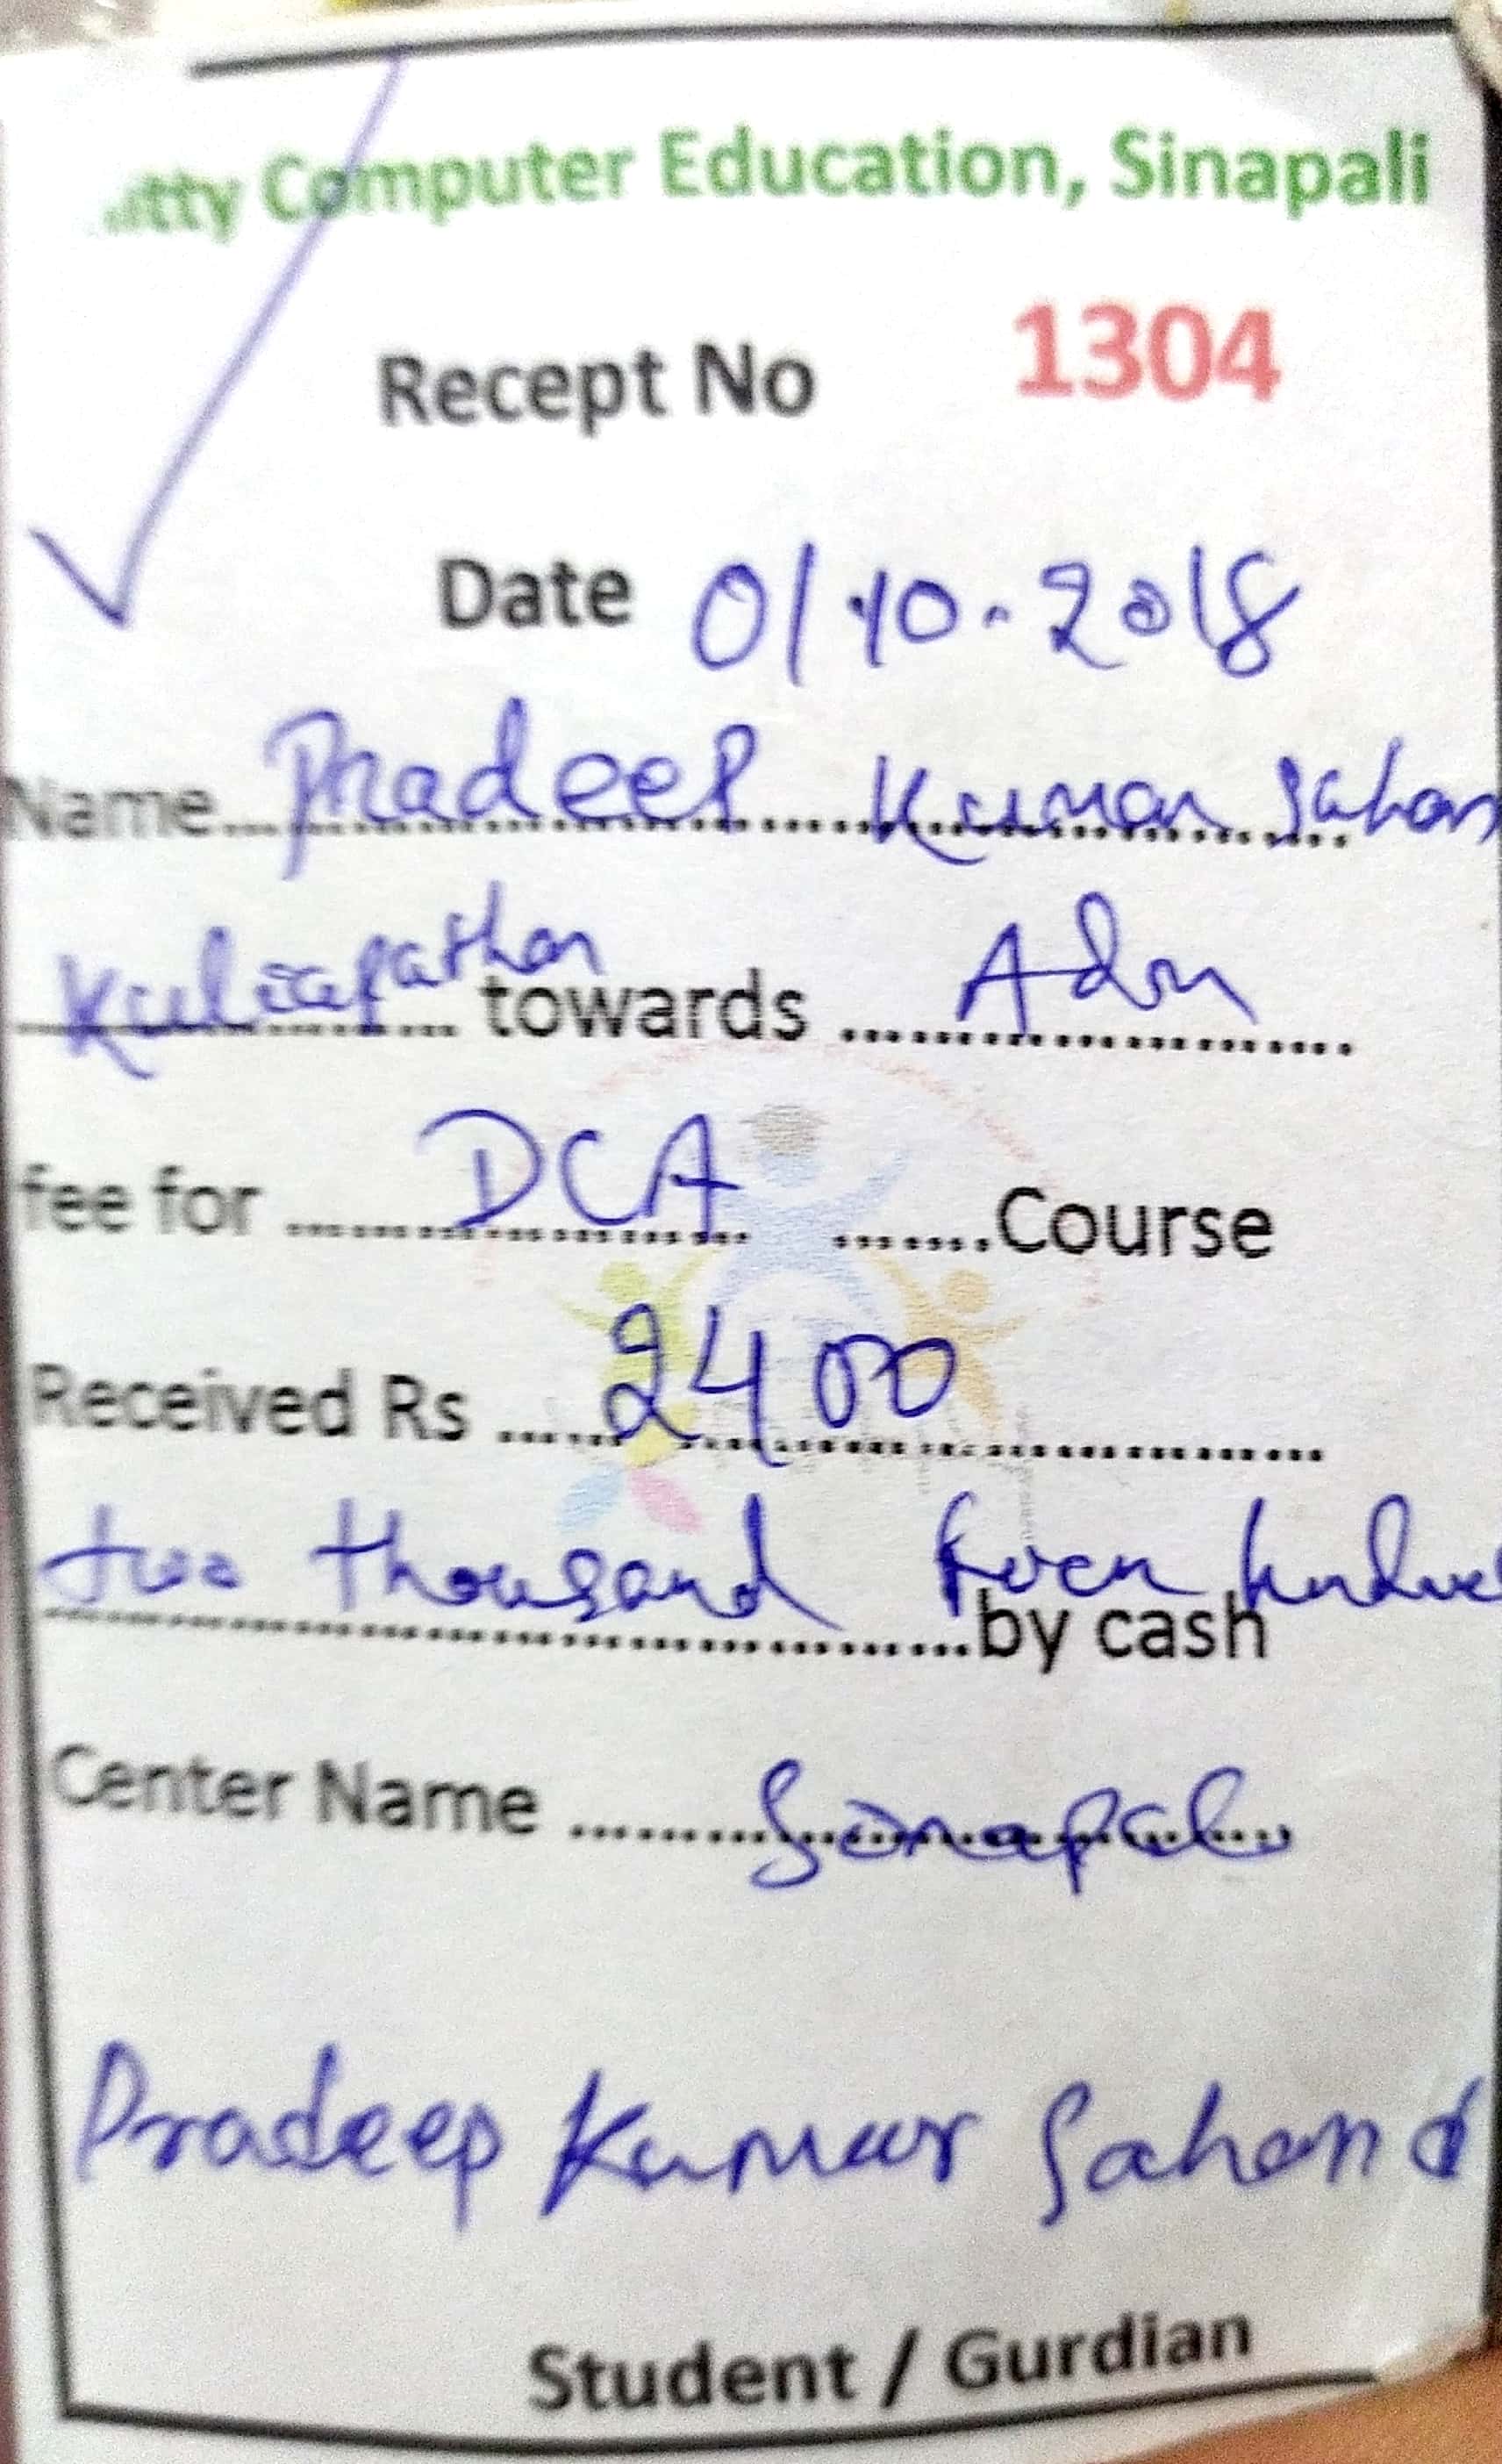 itty Computer Education, Sinapali
Recept No 1304
Date 01.10.2018
Name Pradeep Kumar Sahan
Kuliapathar towards Adm
fee for DCA Course
Received Rs 2400
two thousand
by cash
Center Name Sinapali
Pradeep Kumar Sahand
Student / Gurdian